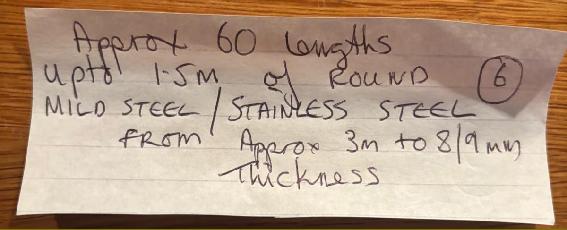 Approx 60 lengths
upto 1.5M of ROUND 6
MILD STEEL / STAINLESS STEEL
FROM Approx 3m to 8/9mm
Thickness